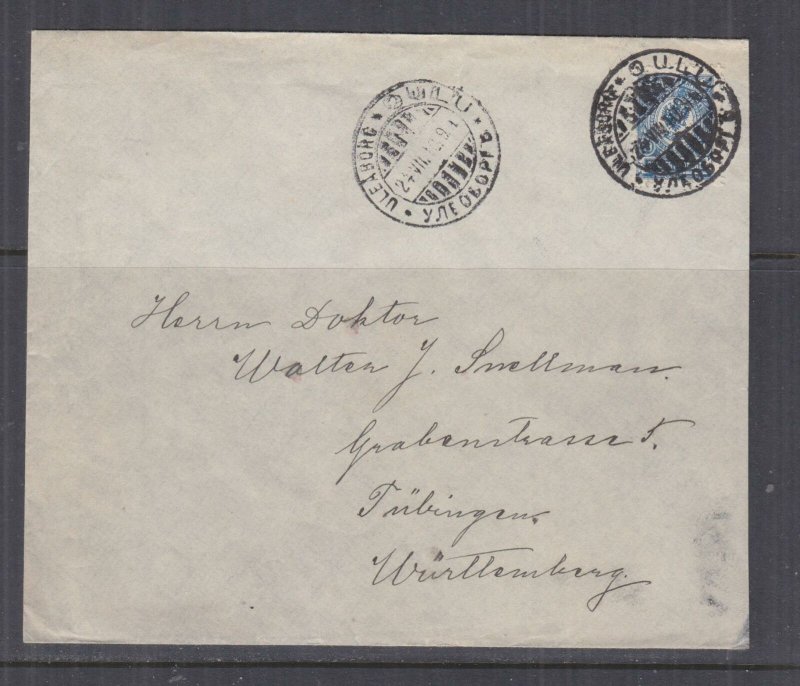 ULEABORG
OULU
УЛЕОБОРГЪ
24.VII.
ULEABORG
OULU
УЛЕОБОРГЪ
Herrn Doktor
Walter J. Snellman.
Grabenstrasse 5.
Tübingen.
Württemberg.